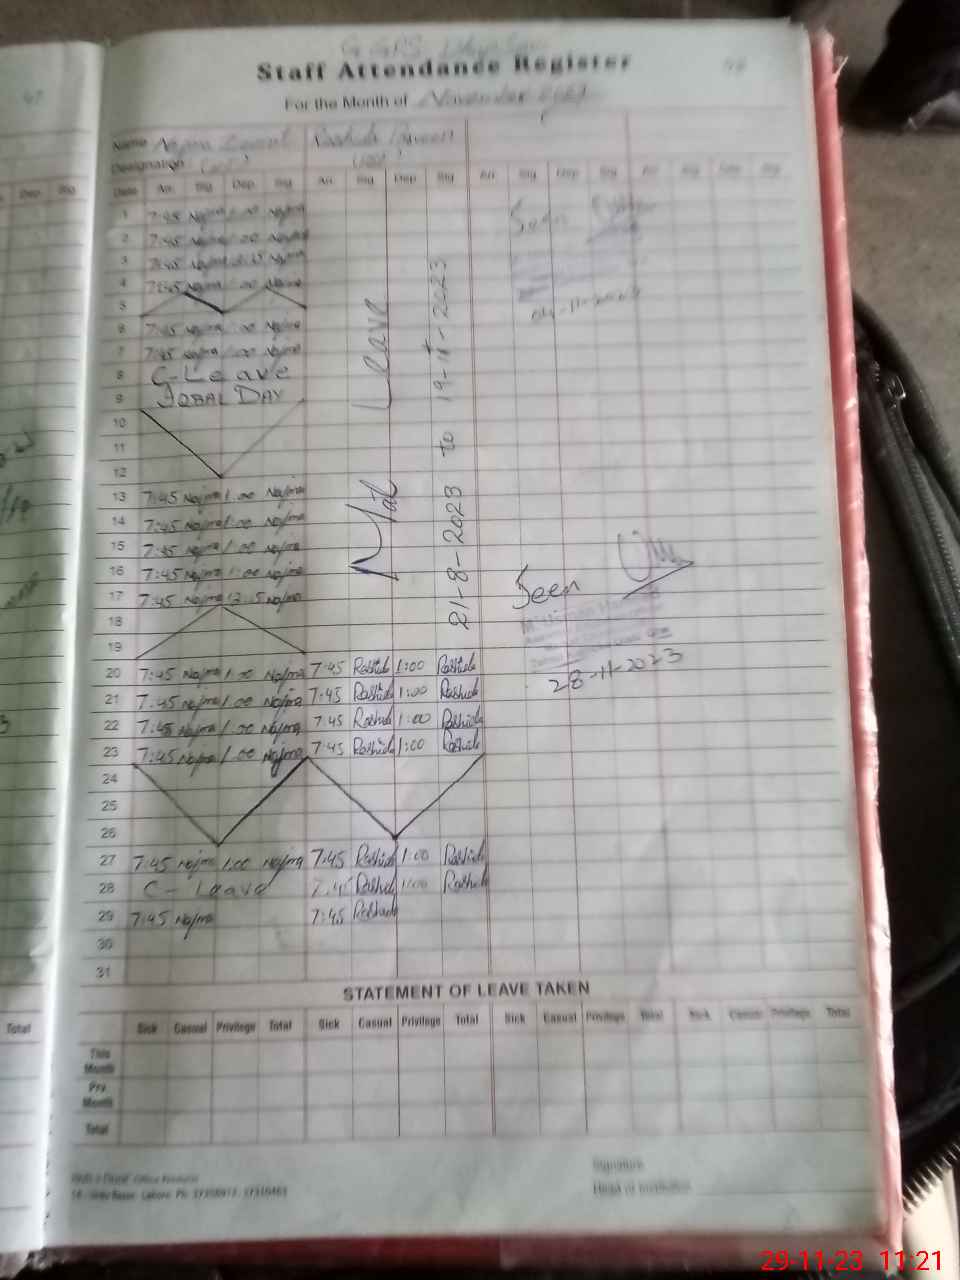 47
G GPS
48
Staff Attendance Register
For the Month of November 2023
Name Najma Rashida Parveen
Designation
Dep Sig
Date Arr Sig Dep Sig Arr Sig Dep Sig Arr Sig Dep Sig Arr Sig Dep Sig
1 7:45 Najma 1:00 Najma
2 7:45 Najma 1:00 Najma
3 7:45 Najma Najma
4 7:45 Najma 1:00 Najma
5
6 7:45 Najma 1:00 Najma
7 7:45 Najma 1:00 Najma
8 C-Leave
9 IQBAL DAY
10
11
12
13 7:45 Najma 1:00 Najma
14 7:45 Najma 1:00 Najma
15 7:45 Najma 1:00 Najma
16 7:45 Najma 1:00 Najma
17 7:45 Najma 12:15 Najma
18
19
Mat Leave
21-8-2023 to 19-11-2023
Seen
04-11-2023
Seen
28-11-2023
20 7:45 Najma 1:00 Najma 7:45 Rashida 1:00 Rashida
21 7:45 Najma 1:00 Najma 7:45 Rashida 1:00 Rashida
22 7:45 Najma 1:00 Najma 7:45 Rashida 1:00 Rashida
23 7:45 Najma 1:00 Najma 7:45 Rashida 1:00 Rashida
24
25
26
27 7:45 Najma 1:00 Najma 7:45 Rashida 1:00 Rashida
28 C-Leave 7:45 Rashida 1:00 Rashida
29 7:45 Najma 7:45 Rashida
30
31
STATEMENT OF LEAVE TAKEN
Total
Sick Casual Privilege Total Sick Casual Privilege Total Sick Casual Privilege Total Sick Casual Privilege Total
This Month
Prv. Month
Total
Signature
Head of Institution
29-11-23 11:21